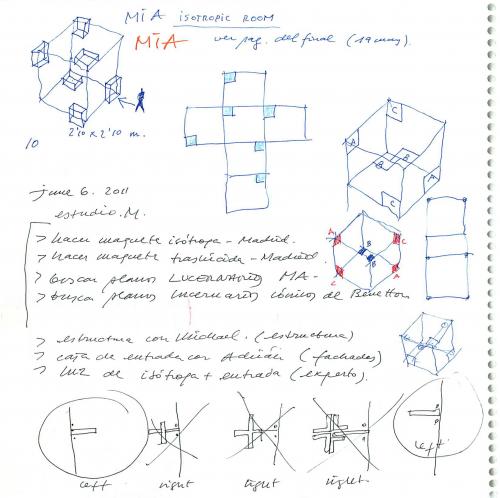 MIA ISOTROPIC ROOM
MIA ver pag. del final (19 may).
2'10 x 2'10 m.
10
C
A
A
B
B
C
june 6. 2011
estudio. M.
> hacer maqueta isótropa - Madrid.
> hacer maqueta traslúcida - Madrid.
> buscar planos LUCERNARIO MA -
> buscar planos lucernarios cónicos de Benetton
A
C
B
B
C
A
> estructura con Michael. (estructura)
> caja de entrada con Adrián (fachadas)
> luz de isótropa + entrada (experto).
left
right
right
right
left